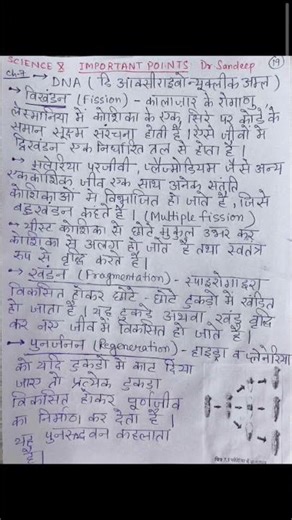 SCIENCE 8 IMPORTANT POINTS Dr Sandeep (19)
Ch-7 → DNA (डि ऑक्सीराइबोन्यूक्लीक अम्ल)
→ विखंडन (Fission) - कालाजार के रोगाणु
लेस्मानिया में कोशिका के एक सिरे पर कोड़े के
समान सूक्ष्म संरचना होती है। ऐसे जीवों में
द्विखंडन एक निर्धारित तल से होता है।
→ मलेरिया परजीवी, प्लैज्मोडियम जैसे अन्य
एककोशिक जीव एक साथ अनेक संतति
कोशिकाओं में विभाजित हो जाते हैं, जिसे
बहुखंडन कहते हैं। (Multiple fission)
→ यीस्ट कोशिका से छोटे मुकुल उभर कर
कोशिका से अलग हो जाते हैं तथा स्वतंत्र
रूप से वृद्धि करते हैं।
→ खंडन (Fragmentation) - स्पाइरोगाइरा
विकसित होकर छोटे-छोटे टुकड़ों में खंडित
हो जाता है। यह टुकड़े अथवा खंड वृद्धि
कर नए जीव में विकसित हो जाते हैं।
→ पुनर्जनन (Regeneration) - हाइड्रा व प्लेनेरिया
को यदि टुकड़ों में काट दिया
जाए तो प्रत्येक टुकड़ा
विकसित होकर पूर्णजीव
का निर्माण कर देता है।
यह पुनरुद्भवन कहलाता
है।